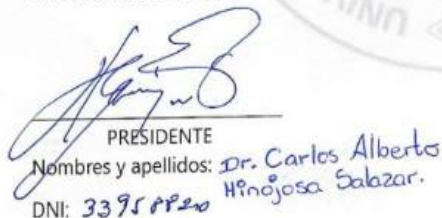 PRESIDENTE
Nombres y apellidos: Dr. Carlos Alberto
Hinojosa Salazar.
DNI: